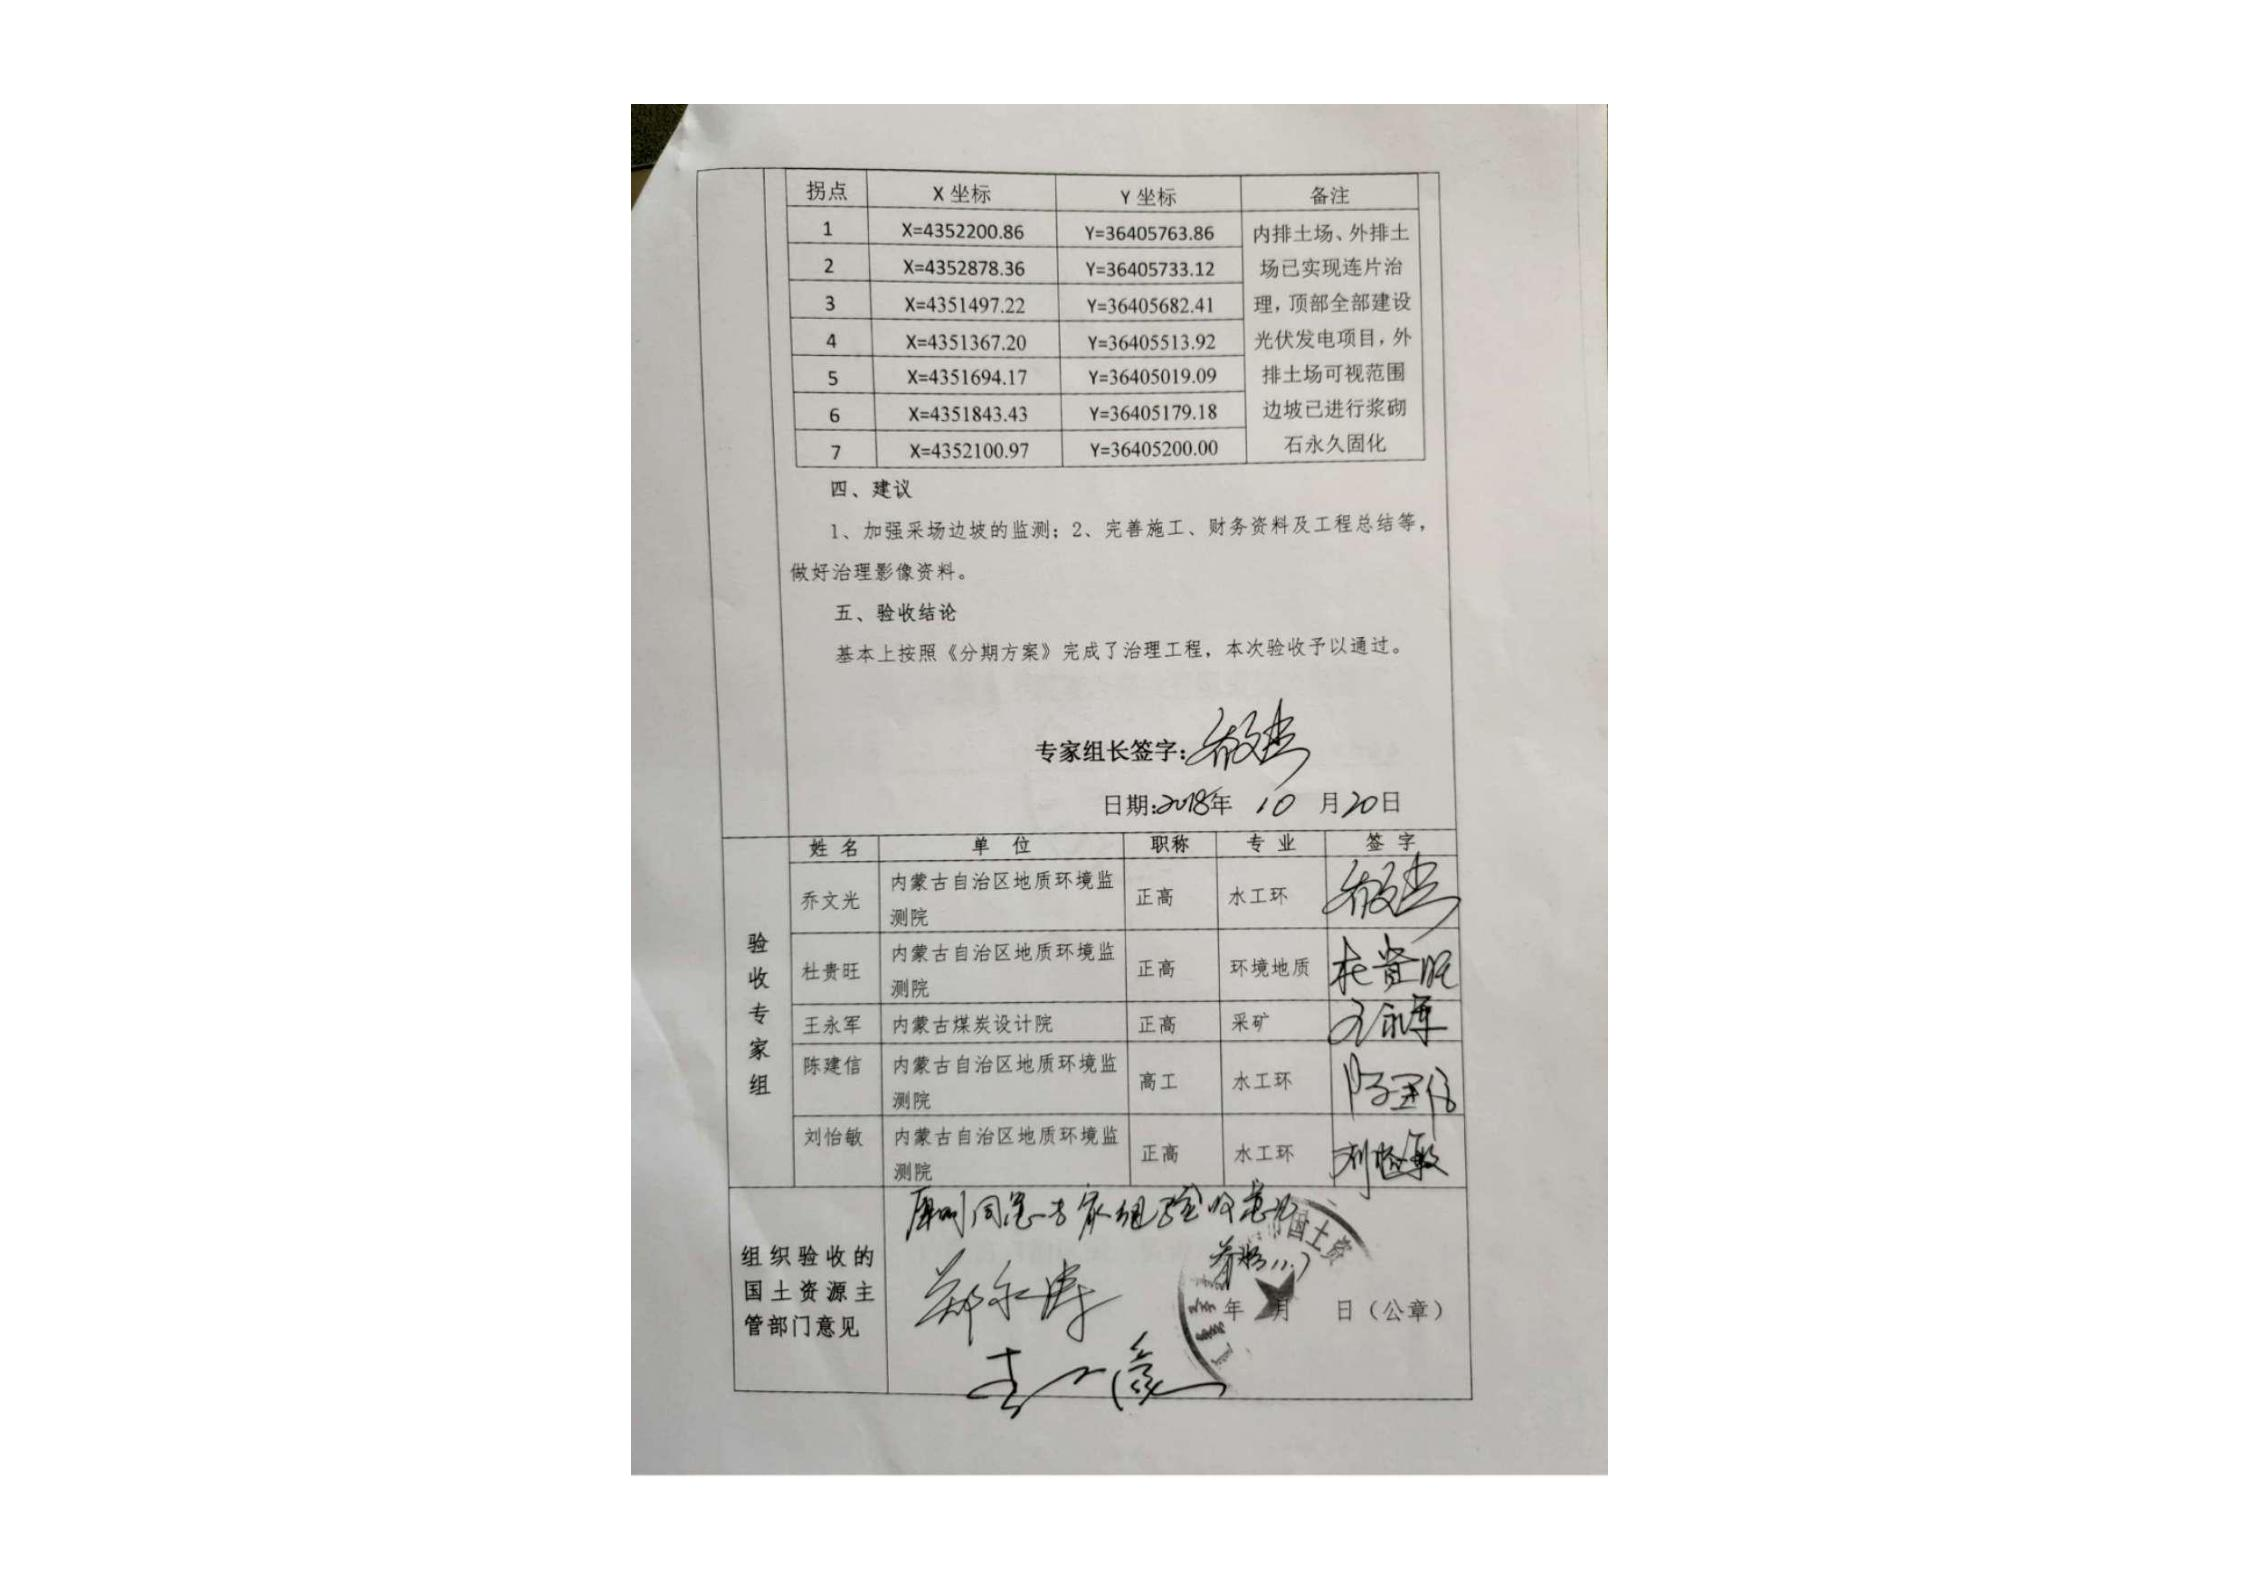 拐点 X 坐标 Y 坐标 备注
1 X=4352200.86 Y=36405763.86 内排土场、外排土
2 X=4352878.36 Y=36405733.12 场已实现连片治
3 X=4351497.22 Y=36405682.41 理，顶部全部建设
4 X=4351367.20 Y=36405513.92 光伏发电项目，外
5 X=4351694.17 Y=36405019.09 排土场可视范围
6 X=4351843.43 Y=36405179.18 边坡已进行浆砌
7 X=4352100.97 Y=36405200.00 石永久固化
四、建议
1、加强采场边坡的监测；2、完善施工、财务资料及工程总结等，
做好治理影像资料。
五、验收结论
基本上按照《分期方案》完成了治理工程，本次验收予以通过。
专家组长签字：乔文光
日期:2018年 10 月20日
验收专家组
姓 名 单 位 职称 专 业 签 字
乔文光 内蒙古自治区地质环境监
测院 正高 水工环 乔文光
杜贵旺 内蒙古自治区地质环境监
测院 正高 环境地质 杜贵旺
王永军 内蒙古煤炭设计院 正高 采矿 王永军
陈建信 内蒙古自治区地质环境监
测院 高工 水工环 陈建信
刘怡敏 内蒙古自治区地质环境监
测院 正高 水工环 刘怡敏
组织验收的
国土资源主
管部门意见
同意专家组验收意见
国土资
年 月 日（公章）